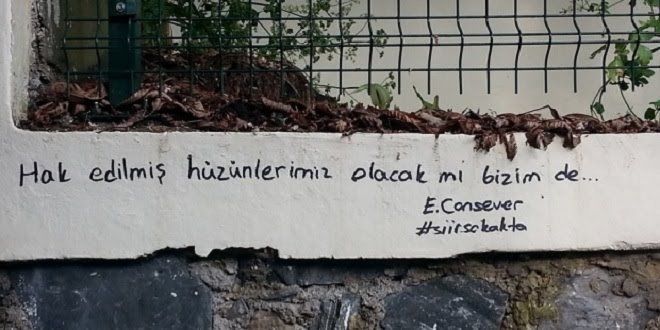 Hak edilmiş hüzünlerimiz olacak mi bizim de...
E.Cansever
#siirsokakta